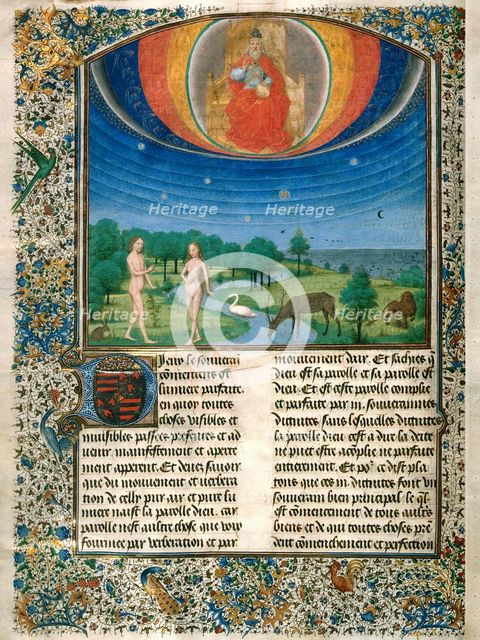 Heritage
Heritage
Heritage
Heritage
Par le souverai
comencient est
lumiere parfaite
en quoy toutes
choses visibles et
invisibles passees presentes et ad
venir manifestement et aperte
ment apperent Et deves savoir
que du mouvement et verbera
tion de celluy pur air et pure lu
miere naist la parolle dieu car
parolle nest aultre chose que voix
fourmee par verberation et par
mouvement dair Et saches q
dieu est sa parolle et sa parolle est
dieu Et est ceste parolle complie
et parfaite par iii souveraines
dignites sans lesquelles dignites
la parolle dieu cest a dire la deite
ne puet estre acomplie ne parfaite
entierement Et po² ce dist pla
ton que ces iii dignites sont un
souverain bien principal le ql
est comencement de tous aultres
biens et de qui toutes choses pre
dent comencement et perfection